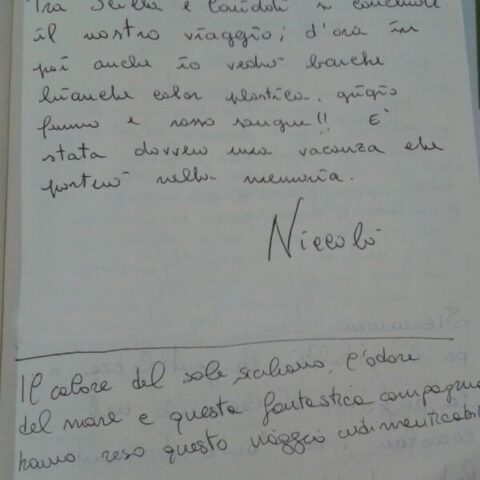 Tra Scilla e Cariddi si conclude
il nostro viaggio; d'ora in
poi anche io vedrò barche
bianche color plastica, grigio
fumo e rosso sangue!! E'
stata davvero una vacanza che
porterò nella memoria.
Niccolò
Il calore del sole siciliano, l'odore
del mare e questa fantastica compagnia
hanno reso questo viaggio indimenticabil